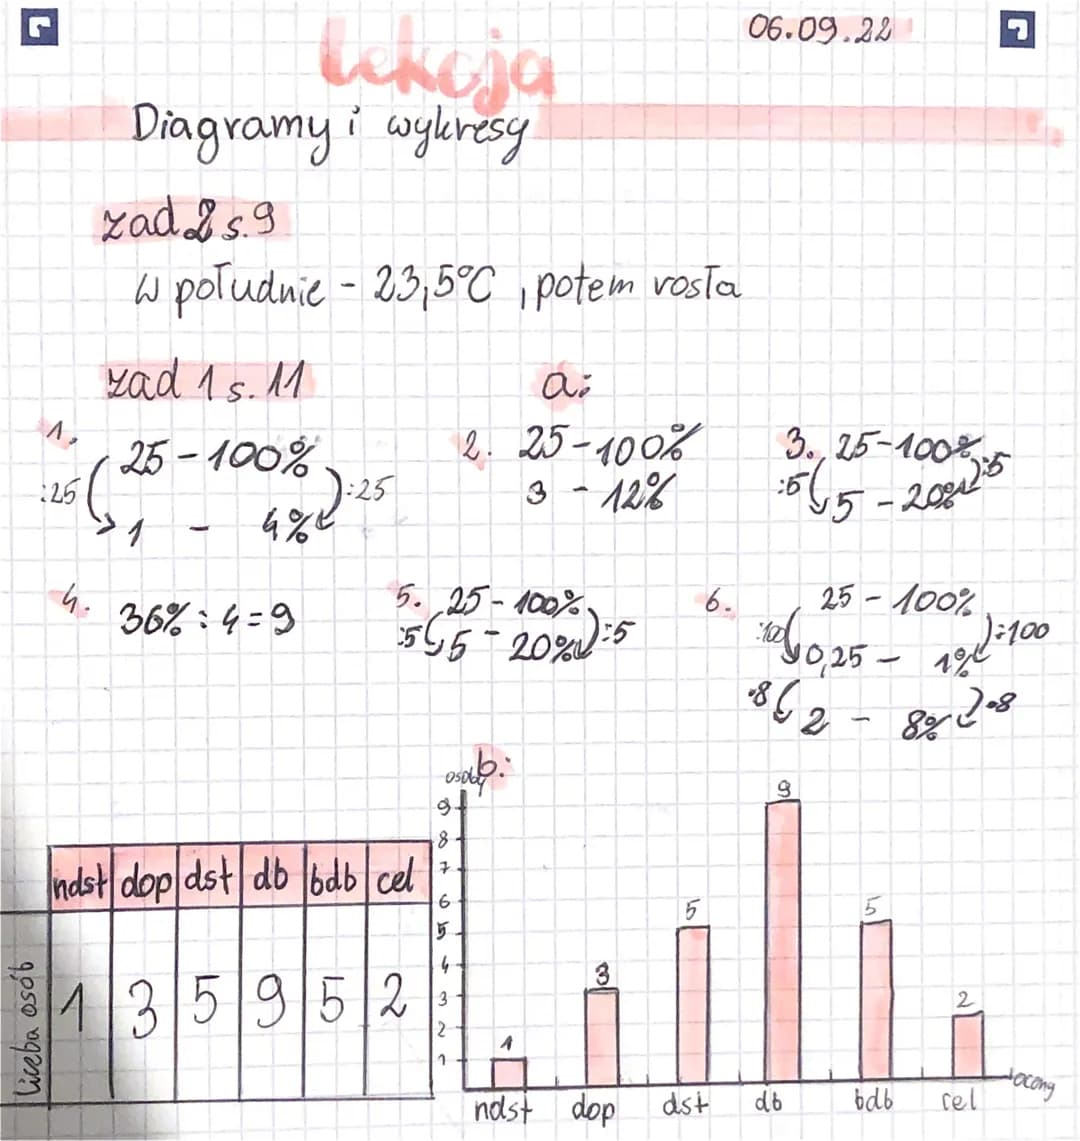 06.09.22
Lekcja
Diagramy i wykresy
zad 2 s.9
W południe - 23,5°C , potem rosła
zad 1 s. 11
a:
1. 25 - 100%
:25 :25
1 - 4%
2. 25 - 100%
3 - 12%
3. 25 - 100%
:5 :5
5 - 20%
4. 36% : 4 = 9
5. 25 - 100%
:5 5 - 20% :5
6. 25 - 100%
:100 :100
0,25 - 1%
·8 ·8
2 - 8%
b:
ndst dop dst db bdb cel
liczba osób 1 3 5 9 5 2
osoby
9
8
7
6
5
4
3
2
1
1 3 5 9 5 2
ndst dop dst db bdb cel